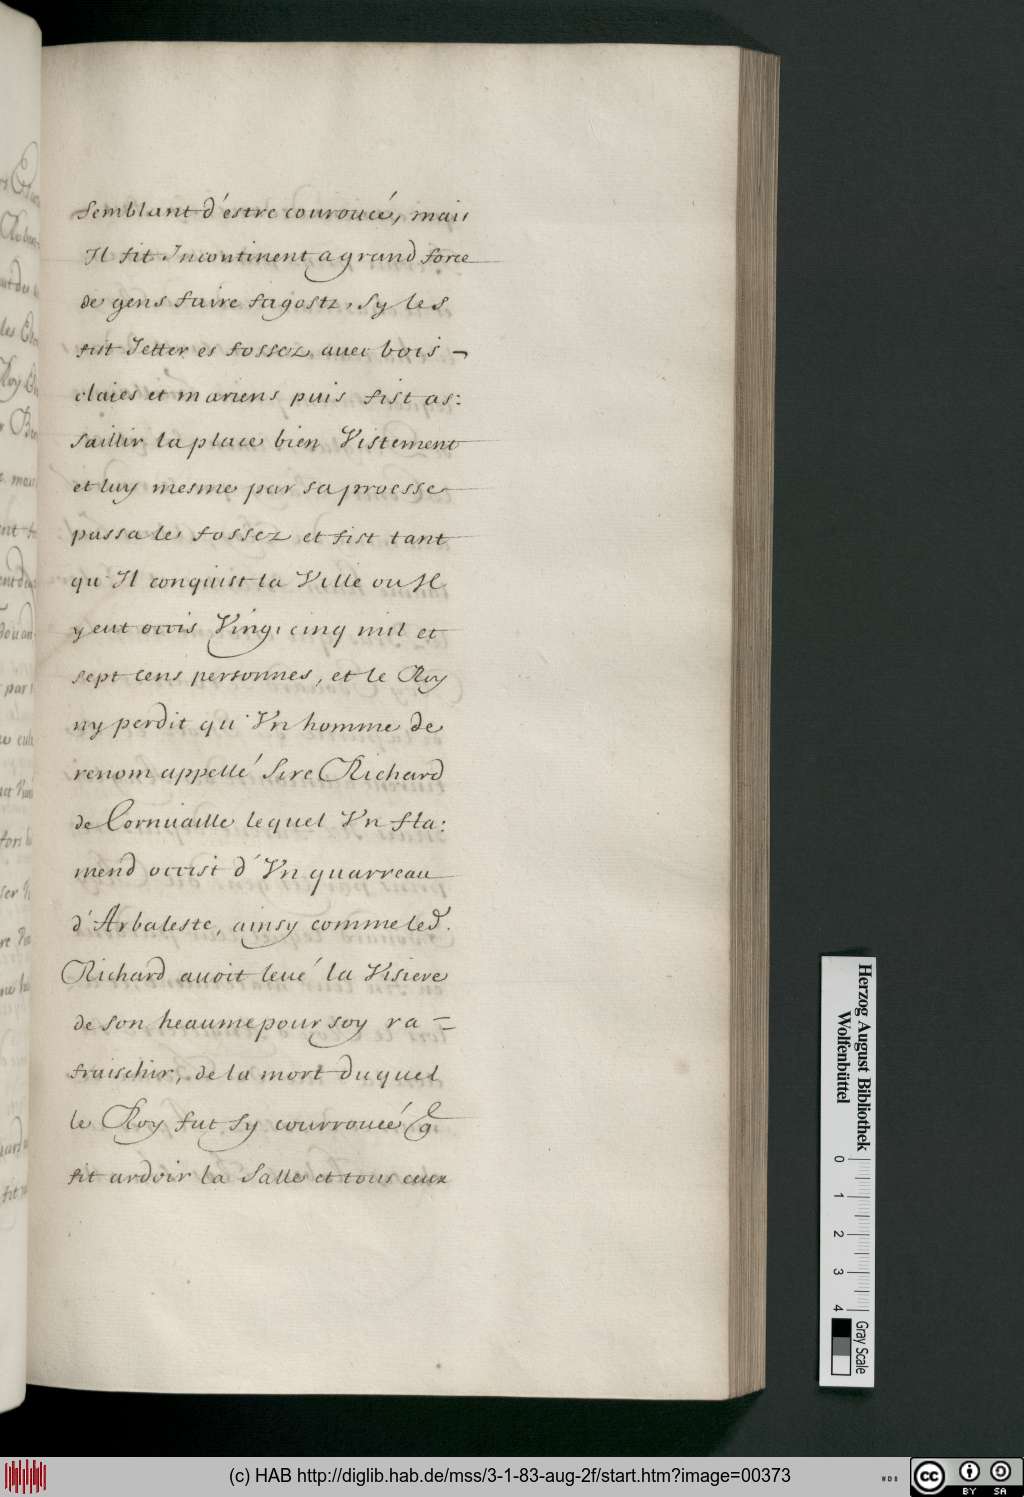 semblant d'estre couroucé, mais
Il fit Incontinent a grand force
de gens faire fagostz, sy les
fist Jetter es fossez auec bois ¬
claies et mariens puis fist as:
saillir la place bien Vistement
et luy mesme par sa proesse
passa le fossez et fist tant
qu'Il conquist la Ville ou Il
y eut occis Vingt cinq mil et
sept cens personnes, et le Roy
ny perdit qu'Vn homme de
renom appellé Sire Richard
de Cornuaille lequel Vn fla:
mend occist d'Vn quarreau
d'Arbaleste, ainsy comme led.
Richard auoit leué la Visiere
de son heaume pour soy ra=
fraischir, de la mort duquel
le Roy fut sy courroucé q
fit ardoir la Salle et tous ceux
Herzog August Bibliothek
Wolfenbüttel
0 1 2 3 4
Gray Scale
(c) HAB http://diglib.hab.de/mss/3-1-83-aug-2f/start.htm?image=00373
WDB
cc BY SA